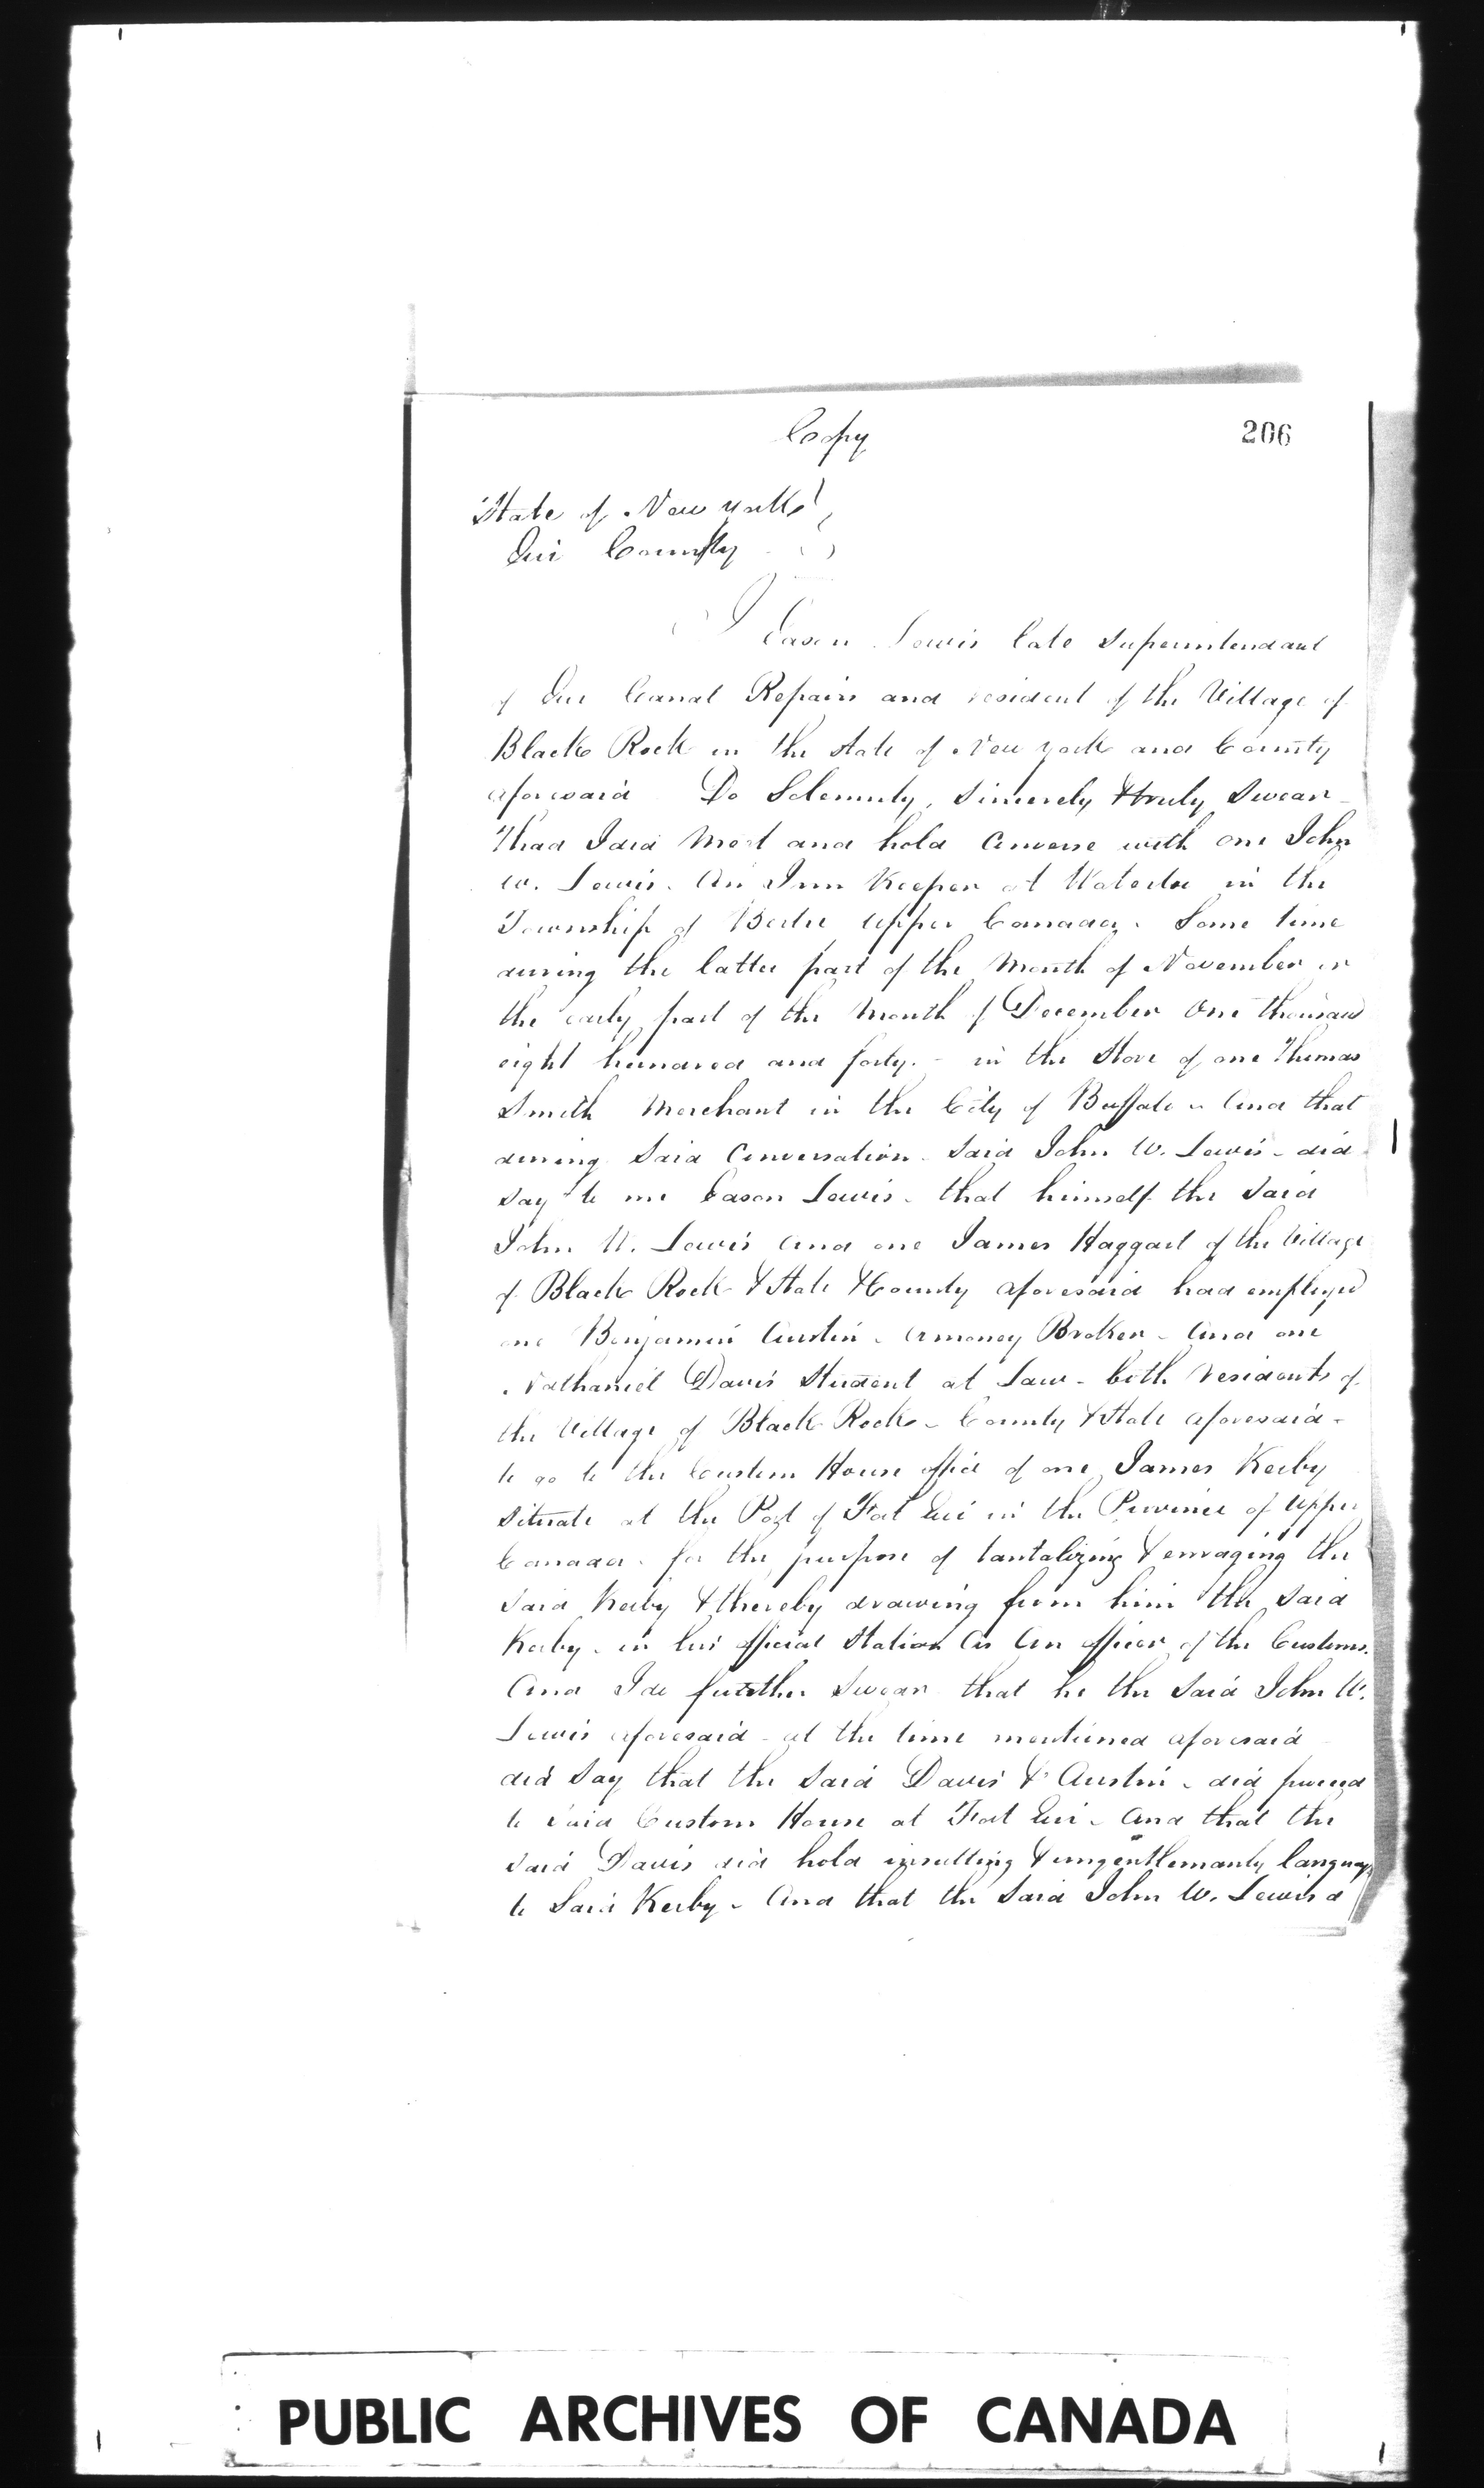 Copy
206
State of New York
Erie County
I Eason Lewis late Superintendant
of Erie Canal Repairs and resident of the Village of
Black Rock in the State of New York and County
aforesaid Do Solemnly, Sincerely & truly Swear
That I did Meet and hold Converse with one John
W. Lewis. An Inn Keeper at Waterloo in the
Township of Bertie Upper Canada. Some time
during the latter part of the Month of November or
the early part of the Month of December One thousand
eight hundred and forty. - in the Store of one Thomas
Smith Merchant in the City of Buffalo - And that
during Said Conversation Said John W. Lewis - did
Say to me Eason Lewis - that himself the Said
John W. Lewis And one James Haggart of the Village
of Black Rock & State & County aforesaid had employed
one Benjamin Austin - a money Broker - And one
Nathaniel Davis Student at Law - both residents of
the Village of Black Rock - County & State aforesaid -
to go to the Custom House office of one James Kerby
Situate at the Port of Fort Erie in the Province of Upper
Canada - for the purpose of tantalizing & enraging the
Said Kerby & thereby drawing from him the Said
Kerby - in his official Station As An officer of the Customs.
And I do further Swear that he the Said John W.
Lewis aforesaid - at the time mentioned aforesaid -
did Say that the Said Davis & Austin - did proceed
to Said Custom House at Fort Erie - And that the
Said Davis did hold insulting & ungentlemanly language
to Said Kerby - And that the Said John W. Lewis d
PUBLIC ARCHIVES OF CANADA